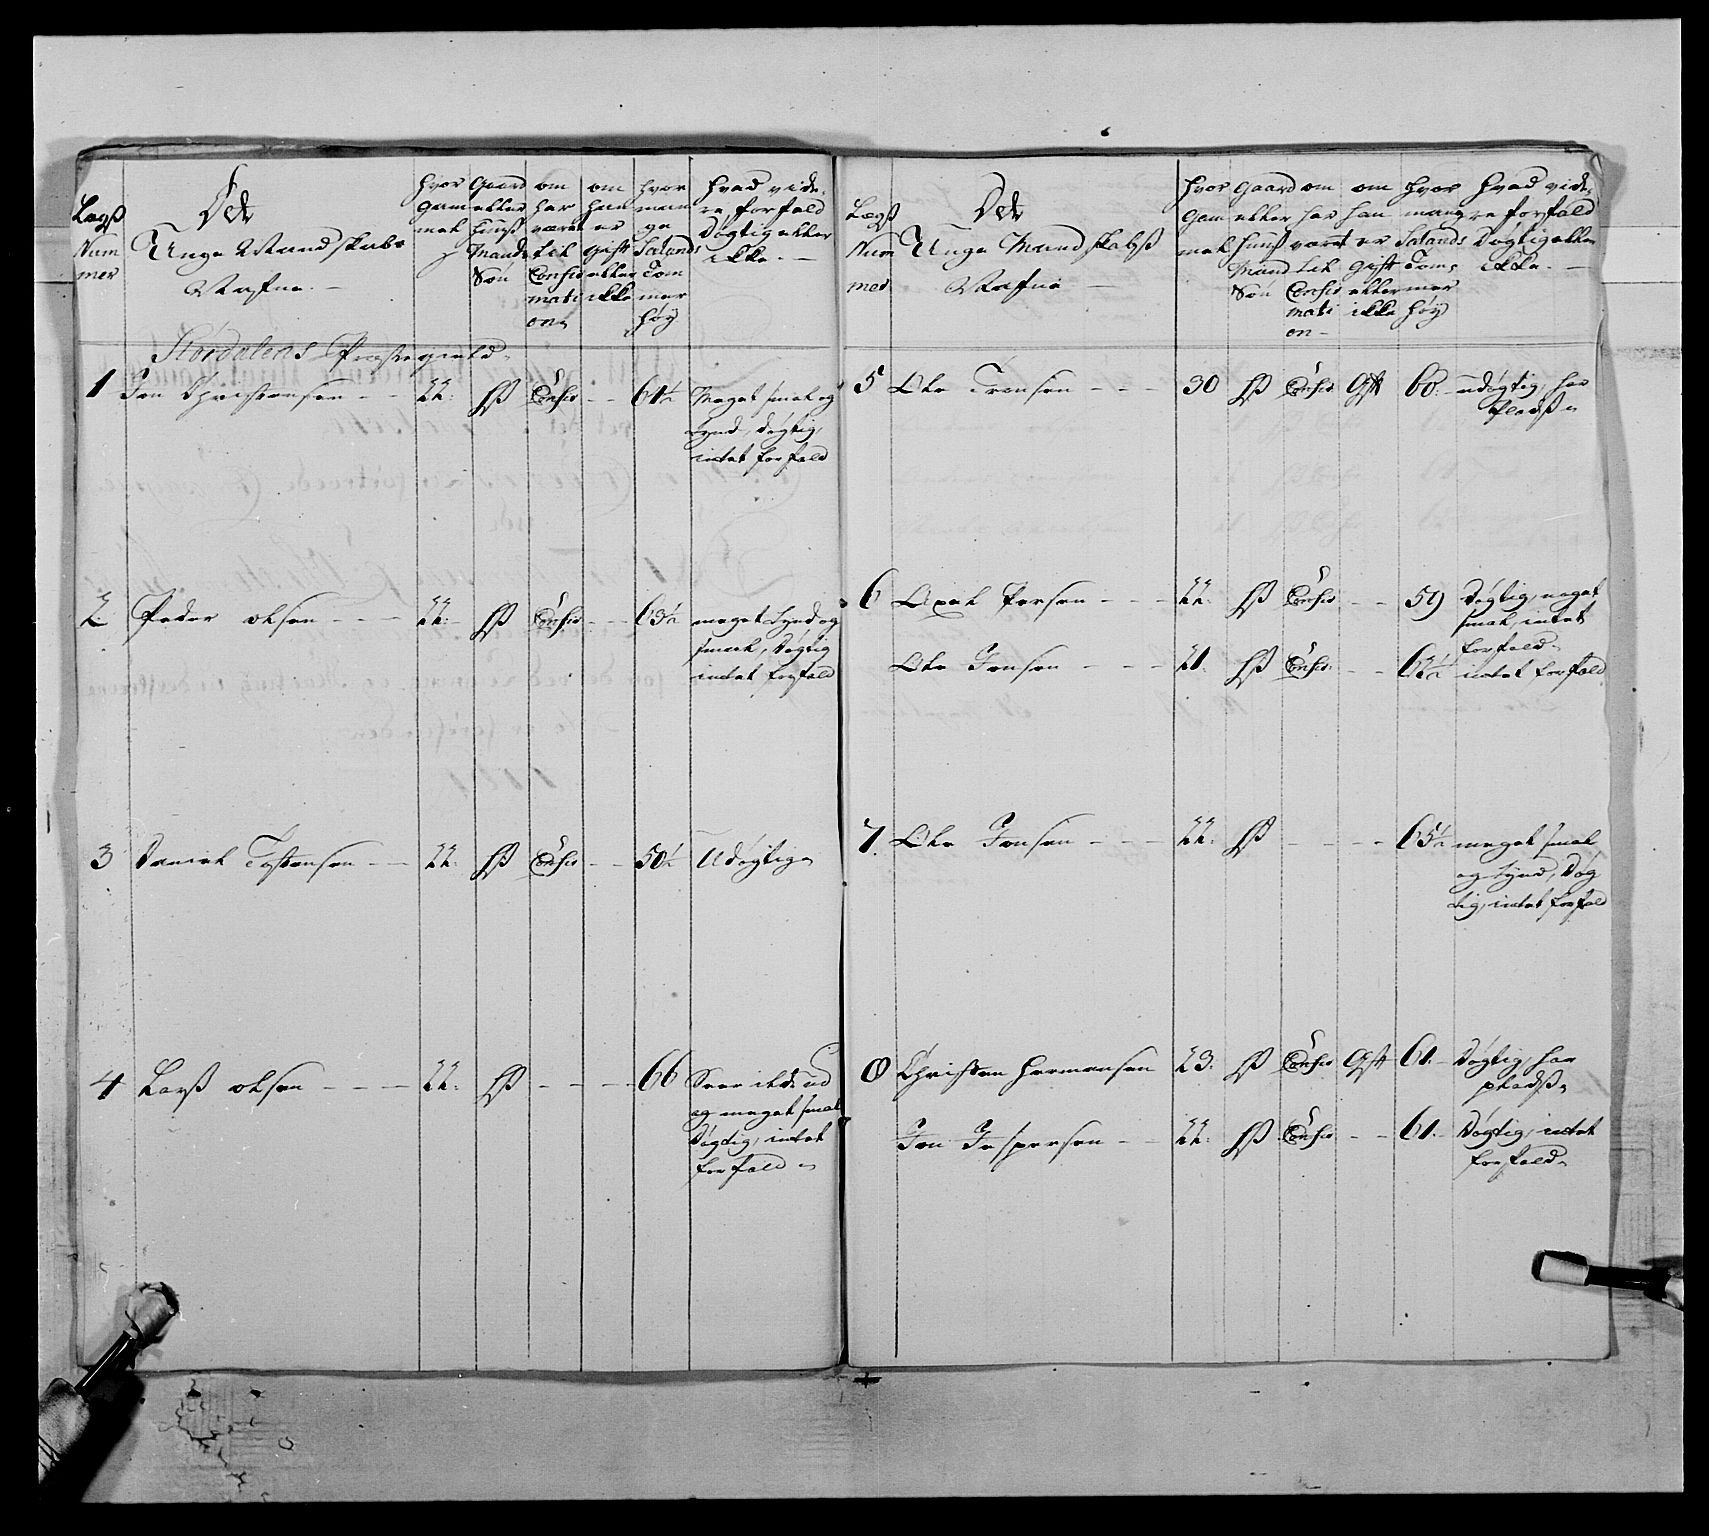 Legß
Num
mer
Det
Unge Mandskabs
Nafne. —
hvor
gam
mel
Gaard
eller
Huuß
Mands
Søn
om
har
været
til
Confir
mati
on
om
han
er
gift
eller
ikke
hvor
man
ge
Sælands
Tom
mer
høy
hvad vide-
re forfald
Døgtig eller
ikke. —
Størdalens Præstegield
1 Jon Christensen — — 22: hß Confir — — 61½ Meget smal og
Tynd, døgtig,
intet forfald
2 Peder olsen — — — 22: hß Confir — — 63½ meget Tynd og
smal, Døgtig
intet forfald
3 Daniel Tostensen — — 22: hß Confir — — 50½ Udøgtig
4 Larß olsen — — — 22: hß — — — — 66 Seer ilde ud
og meget smal
Døgtig, intet
forfald
Legß
Num
mer
Det
Unge Mandskabß
Nafne —
hvor
gam
mel
gaard
eller
huus
Mand
Søn
om
har
været
til
Confir
mati
on
om
han
er
gift
eller
ikke
hvor
mang
Sælands
Tom,
mer
høy
hvad vide,
re forfald
Døgtig eller
ikke. —
5 Ole Trensen — — — 30 hß Confir Gift 60. udøgtig, har
pladß
6 Axel Persen — — — 22: hß Confir — — 59 Døgtig, meget
smal, intet
forfald
Ole Jonsen — — — 21. hß Confir — — 62½ intet forfald
7. Ole Jonsen — — — 22: hß — — — — 65½ meget smal
og tynd, Døg
tig, intet forfald
8 Christen Hermansen 23: hß Confir Gift 61. Døgtig, har
pladß
Jon Jespersen — — 22: hß Confir — — 61. Døgtig, intet
forfald